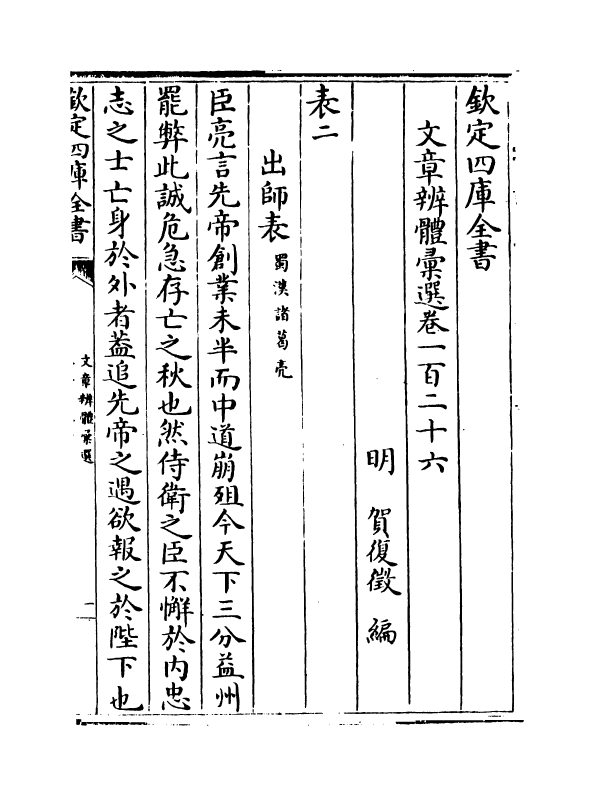 欽定四庫全書
文章辨體彚選卷一百二十六
明 賀復徵 編
表二
出師表 蜀漢諸葛亮
臣亮言先帝創業未半而中道崩殂今天下三分益州
罷弊此誠危急存亡之秋也然侍衛之臣不懈於內忠
志之士亡身於外者葢追先帝之遇欲報之於陛下也
欽定四庫全書
文章辨體彚選